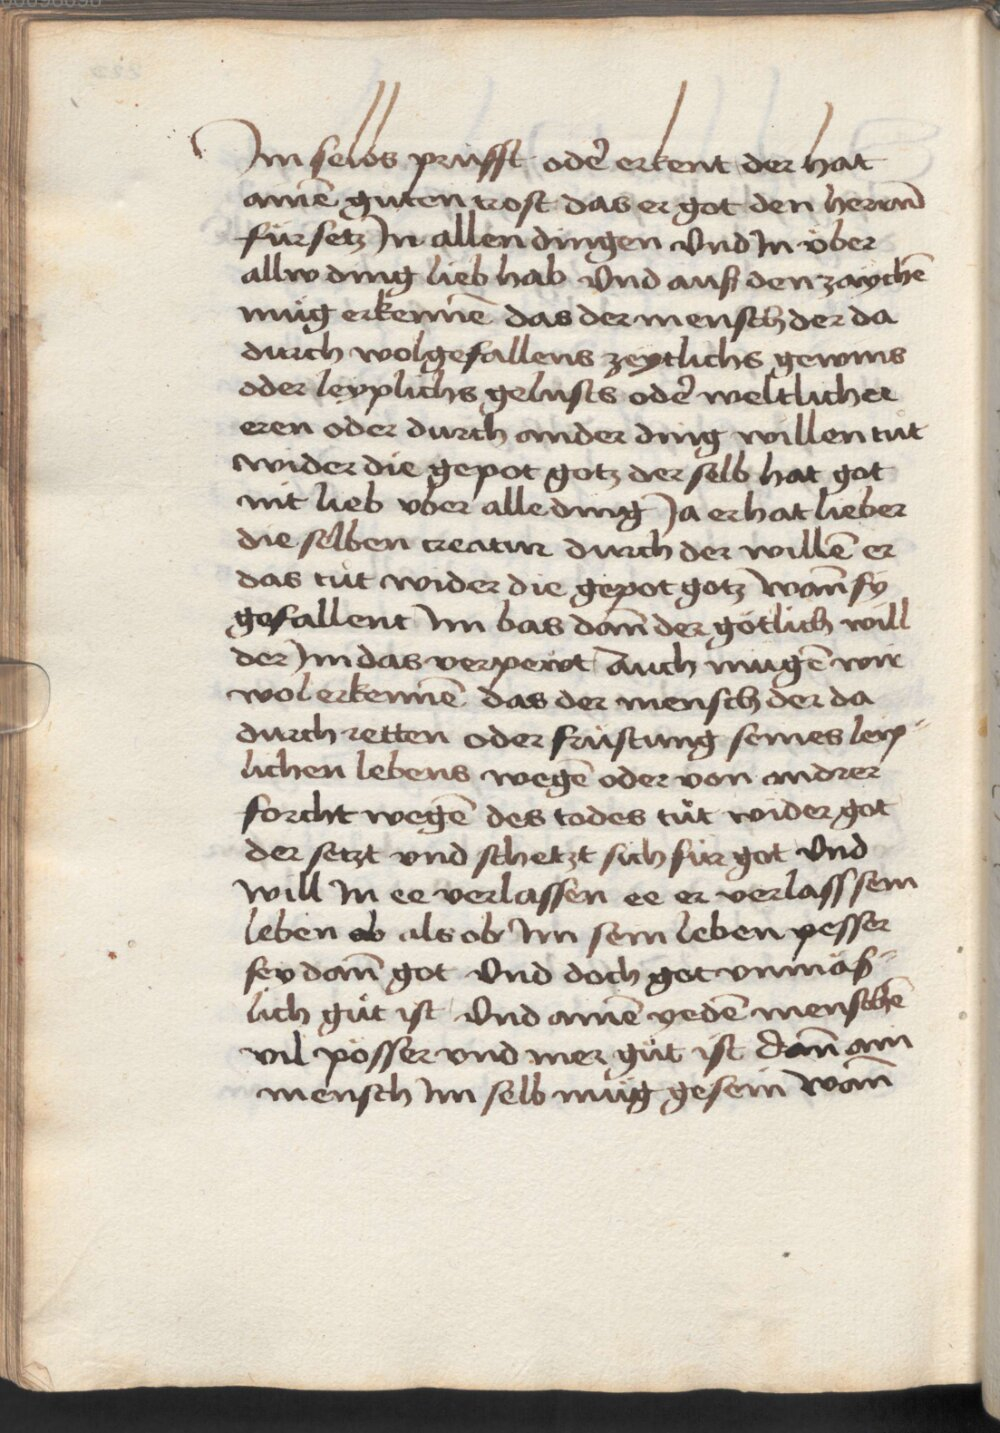 Im selbs prüfft odẽ erkent der hat
ainẽ guten trost das er got den herrn̄
fürsetz In allen dingen Vnd In über
allw ding lieb hab Vnd auß den zaychẽ
müg erkennẽ das der mensch der da
durch wolgefallens zeytlichs gewins
oder leyplichs gelusts odẽ weltlicher
eren oder durch ander ding willen tüt
wider die gepot gotz der selb hat got
nit lieb vber alle ding Ja er hat lieber
die selben creatur durch der willẽ er
das tüt wider die gepot gotz wañ sy
gefallent Im bas dañ der götlich will
der Im das verpewt Auch mügẽ wir
wol erkennẽ das der mensch der da
durch retten oder fristung seines leip-
lichen lebens wegẽ oder von andrer
forcht wegẽ des todes tüt wider got
der setzt vnd schetzt sich für got Vnd
will In ee verlassen ee er verlass sein
leben ab als ob Im sein leben pesser
sey dañ got Vnd doch got vnmäß-
lich güt ist Vnd ainẽ yedẽ menschẽ
vil pösser vnd mer güt ist dañ ain
mensch Im selb müg gesein wañ